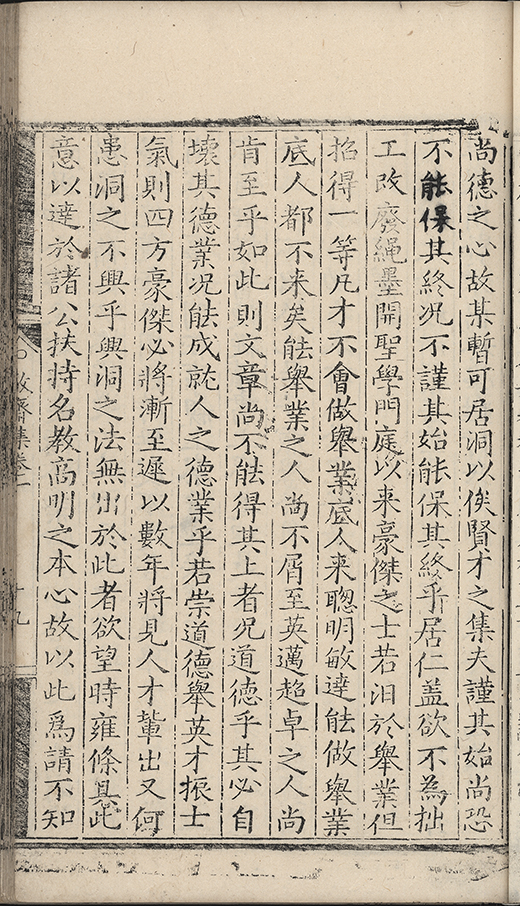 尚德之心故某暫可居洞以俟賢才之集夫謹其始尚恐
不能保其終况不謹其始能保其終乎居仁盖欲不為拙
工改廢繩墨開聖學門庭以来豪傑之士若汨於舉業但
招得一等凡才不會做舉業底人来聰明敏達能做舉業
底人都不来矣能舉業之人尚不屑至英邁超卓之人尚
肯至乎如此則文章尚不能得其上者况道德乎其必自
壞其德業况能成就人之德業乎若崇道德舉英才振士
氣則四方豪傑必將漸至遲以數年將見人才輩出又何
患洞之不興乎興洞之法無出於此者欲望時雍條具此
意以達於諸公扶持名教高明之本心故以此爲請不知
敬齋集卷一
十九